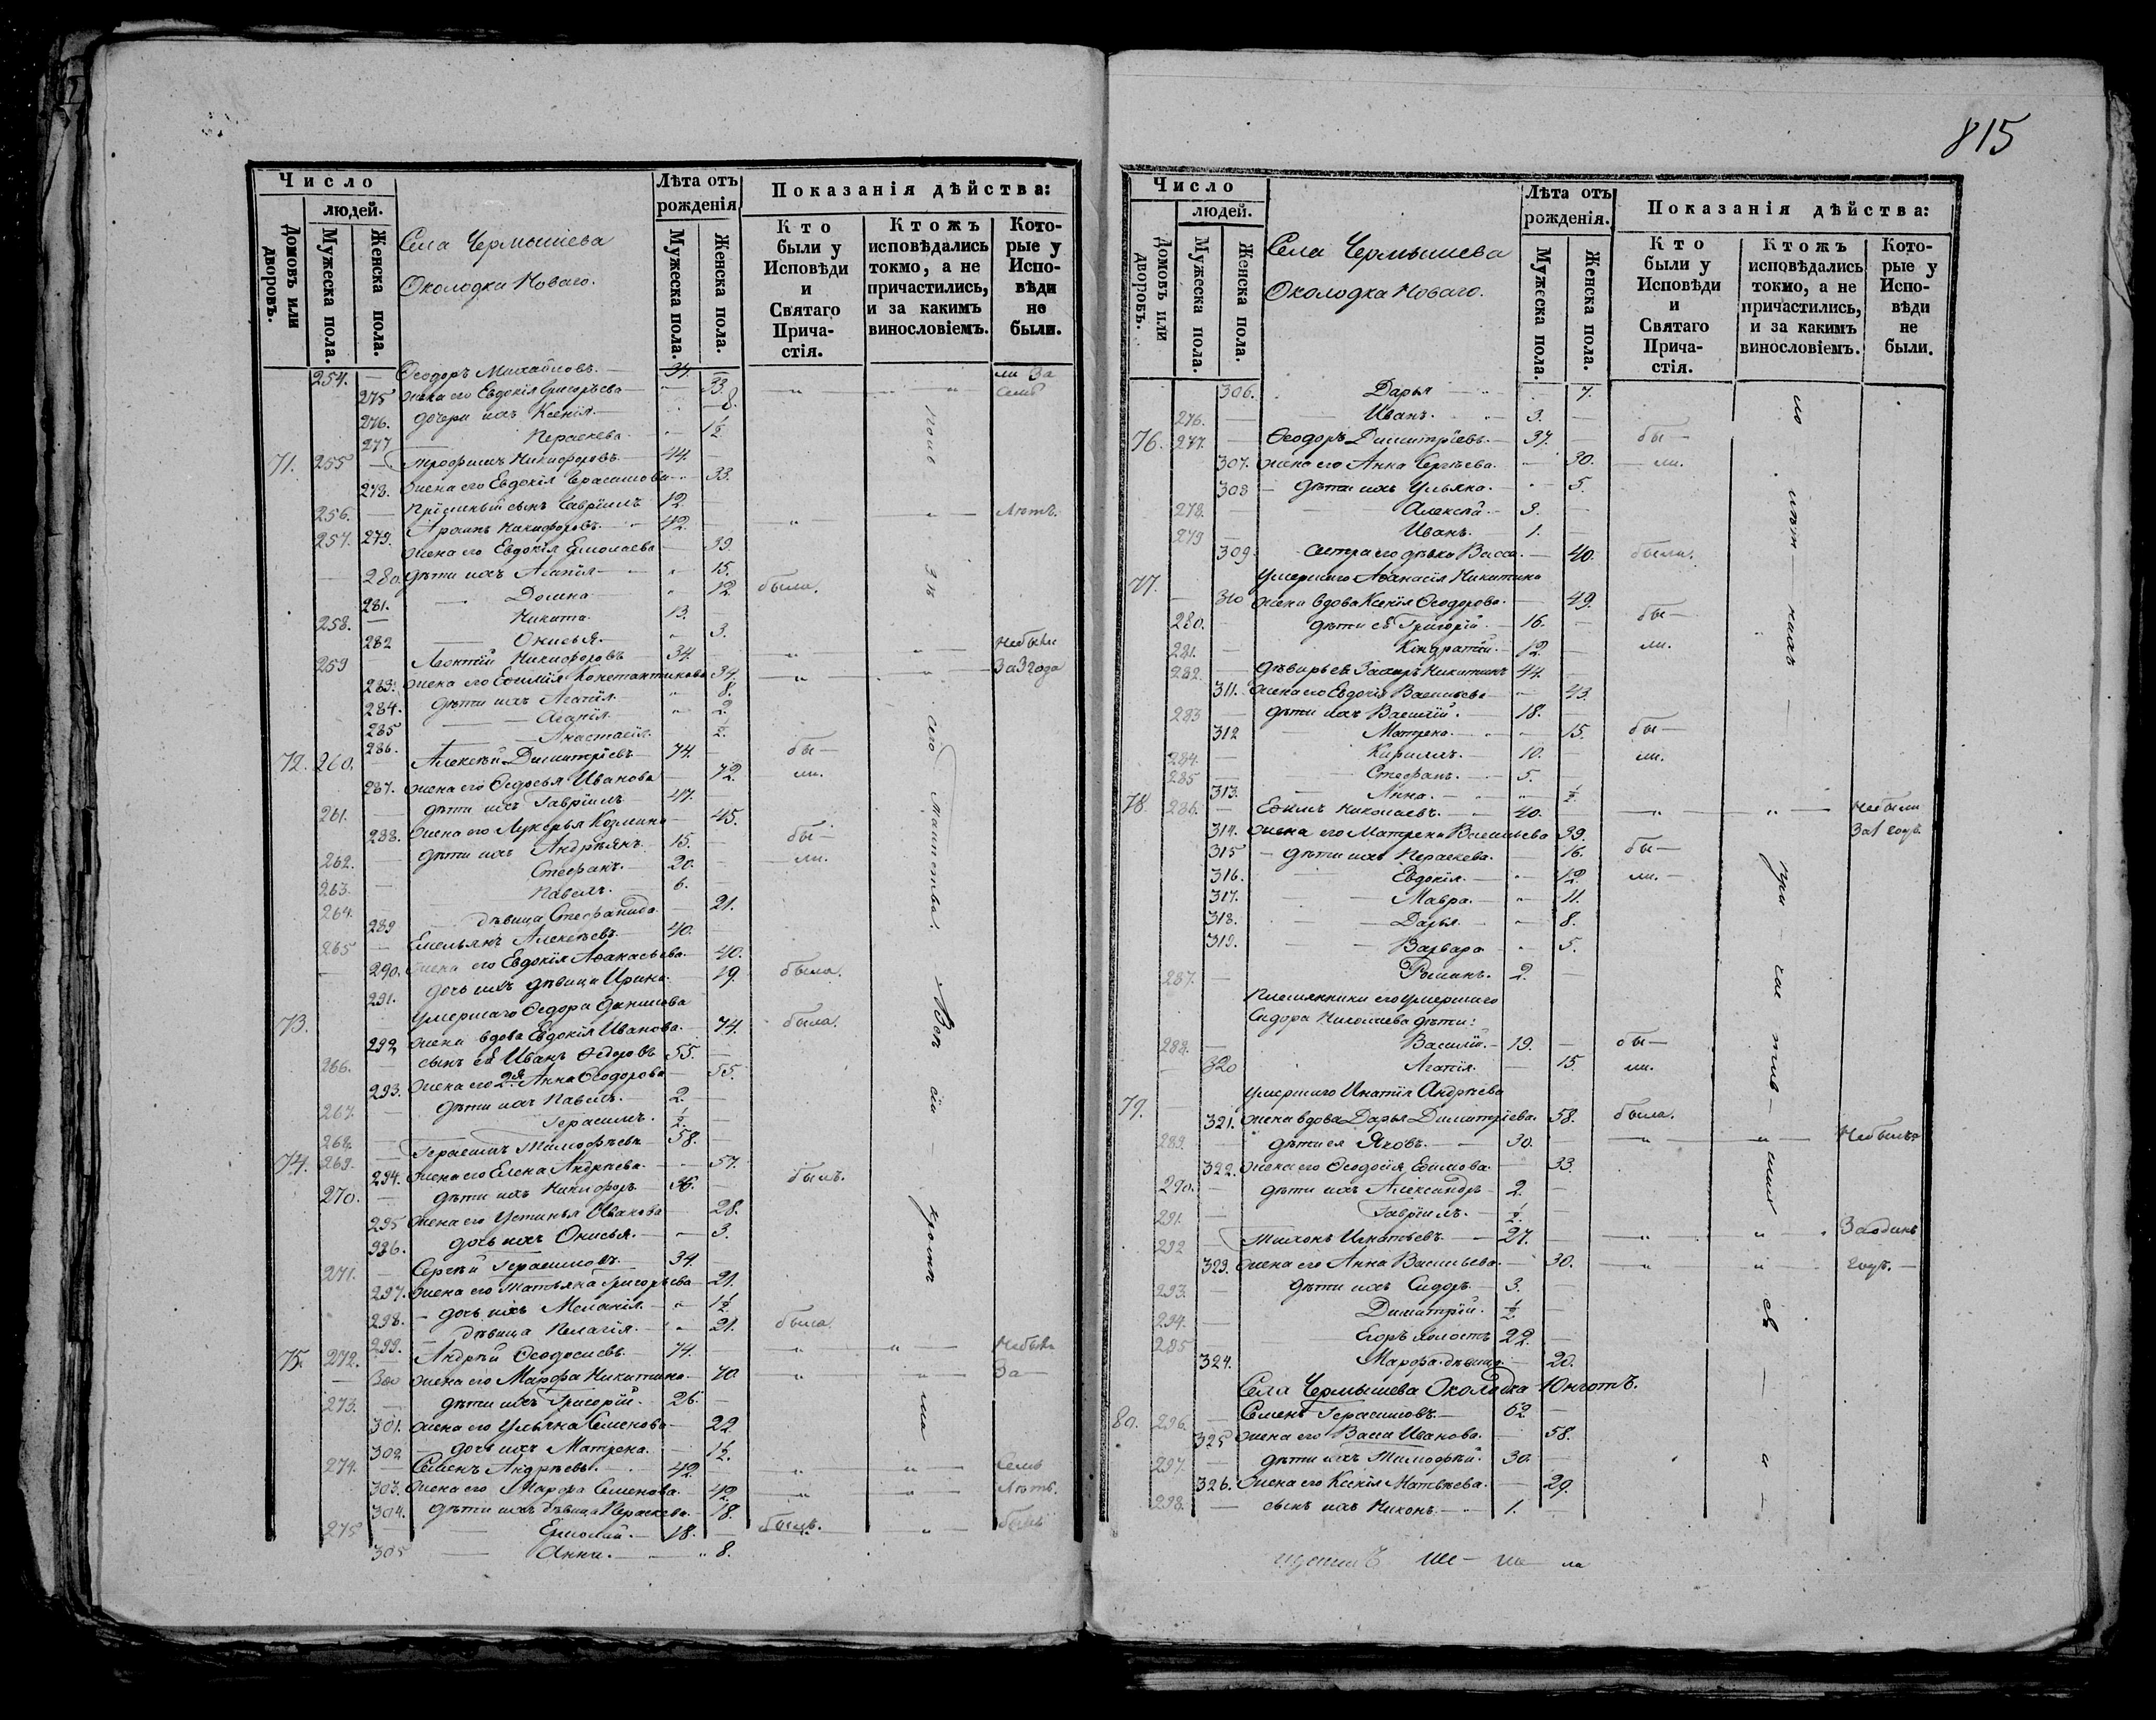 815
Число
людей.
Домовъ или дворовъ.
Мужеска пола.
Женска пола.
Села Чермышева
Околодка Новаго.
Лѣта отъ рожденія
Мужеска пола.
Женска пола.
Показанія дѣйства:
Кто были у Исповѣди и Святаго Прича-стія.
Ктожъ исповѣдались токмо, а не причастились, и за какимъ винословіемъ.
Кото-рые у Испо-вѣди не были.
254. — Ѳеодоръ Михайловъ. — 34. — ли за
275 жена его Евдокія Григорьева — 33. семь
276. дочери ихъ Ксенія. — 8.
277 Параскева. — 1½
71. 255 — Трофимъ Никифоровъ. — 44. —
278. жена его Евдокія Герасимова — 33.
256. — Пріемный сынъ Гавріилъ 12. лѣтъ.
257. 279. Никифоровъ. — 42.
жена его Евдокія Ермолаева — 39.
280. дѣти ихъ Агапія — 15.
281. Домна 12 была.
258. — Никита. 13.
282 Онисья. 3.
259 Леонтій Никифоровъ 34. Небыли
283. жена его Евѳимія Константинова 34. За 3 года
284. дѣти ихъ Агапія. 8.
285 Агапія 2.
286. Анастасія. ½.
72. 260. — Алексѣй Димитріевъ. 74. — бы —
287. жена его Ѳедосья Иванова 72. ли.
261. дѣти ихъ Гавріилъ 47.
288. жена его Лукерья Козмина 45.
262. дѣти ихъ Андреянъ. 15. — бы —
263. Стефанъ. 20. ли.
264. Павелъ. 6.
289 дѣвица Стефанида. 21.
265 — Емельянъ Алексѣевъ. 40.
290. жена его Евдокія Аѳанасьева. 40.
291. дочь ихъ дѣвица Ирина. 19. была.
73. Умершаго Ѳедора Данилова
292 жена вдова Евдокія Иванова. — 74. была.
266. — сынъ ея Иванъ Ѳедоровъ 55. —
293. жена его 2я Анна Ѳеодорова 55.
267. — дѣти ихъ Павелъ. — 2. —
268. Герасимъ. ½. —
74. 269. — Герасимъ Тимофѣевъ — 58. —
294. жена его Елена Андреева. — 57.
270. — дѣти ихъ Никифоръ 36. — былъ.
295 жена его Устинья Иванова 28.
296. дочь ихъ Онисья. — 3.
271. — Сергѣй Герасимовъ. 34.
297. жена его Татьяна Григорьева 21.
298. — дочь ихъ Меланія. — 1½
299. — дѣвица Пелагія. — 21. была.
75. 272. — Андрей Ѳеодосіевъ. — 74. Небыли
300 жена его Марфа Никитина. — 70 За —
273. — дѣти ихъ Григорій. — 26.
301. жена его Ульяна Семенова — 22
302 — дочь ихъ Матрена. 1½.
274. — Семенъ Андреевъ. 42. семь
303. жена его Марфа Семенова. — 42 лѣтъ.
304. дѣти ихъ дѣвица Параскева. — 18.
275 Ермолай. — 18. — былъ.
305 Анна. — 8.
сего Таинства.
Вси сіи — кромѣ
Число
людей.
Домовъ или дворовъ.
Мужеска пола.
Женска пола.
Села Чермышева
Околодка Новаго.
Лѣта отъ рожденія.
Мужеска пола.
Женска пола.
Показанія дѣйства:
Кто были у Исповѣди и Святаго Прича-стія.
Ктожъ исповѣдались токмо, а не причастились, и за какимъ винословіемъ.
Кото-рые у Испо-вѣди не были.
306. Дарья 7.
276. — Иванъ. 3. —
76. 277. — Ѳеодоръ Димитріевъ. — 37. — бы —
307. жена его Анна Сергѣева. — 30. — ли.
308 — дѣти ихъ Ульяна. — 5.
278. — Алексѣй. — 3. —
279 — Иванъ. 1. —
309. сестра его дѣвка Васса. — 40. была.
77. Умершаго Аѳанасія Никитина
310 жена вдова Ксенія Ѳеодорова. 49.
280. — дѣти ея Григорій. — 16. — бы —
281. — Кондратій. 12. ли.
282. — деверь ея Захаръ Никитинъ 44. —
311. жена его Евдокія Васильева — 43.
283 — дѣти ихъ Василій. — 18. —
312 Матрена. — 15. бы —
284. — Кириллъ. — 10. — ли.
285 — Стефанъ. — 5. —
313. Анна. — ½.
78 286. — Ефимъ Николаевъ. — 40. — Небыли
314. жена его Матрена Васильева 39. За 1 годъ.
315 — дѣти ихъ Параскева. — 16. бы —
316. Евдокія. — 12. ли. —
317. Мавра. — 11.
318. Дарья. — 8.
319. Варвара — 5.
287. — Романъ. 2. —
Племянники его умершаго
Сидора Николаева дѣти:
288. — Василій. — 19. — бы —
320 Агапія. — 15. ли.
79. Умершаго Игнатія Андреева
321. жена вдова Дарья Димитріева. 58. была.
289. — дѣти ея Яковъ. — 30. — Небылъ
322. жена его Ѳеодосія Ефимова. — 33.
290. — дѣти ихъ Александръ 2. —
291. — Гавріилъ. — ½. —
292 — Тихонъ Игнатьевъ. — 27. — За одинъ
323. жена его Анна Васильева. — 30. годъ. —
293. — дѣти ихъ Сидоръ. 3. —
294. — Димитрій. ½ —
295 Егоръ холостъ 22. —
324. Марфа дѣвица — 20.
Села Чермышева Околодка
80. 296. — Семенъ Герасимовъ. — 62 —
325 жена его Васса Иванова. — 58.
297. — дѣти ихъ Тимофѣй. 30. —
326. жена его Ксенія Матвѣева. — 29.
298. — сынъ ихъ Никонъ. — 1.